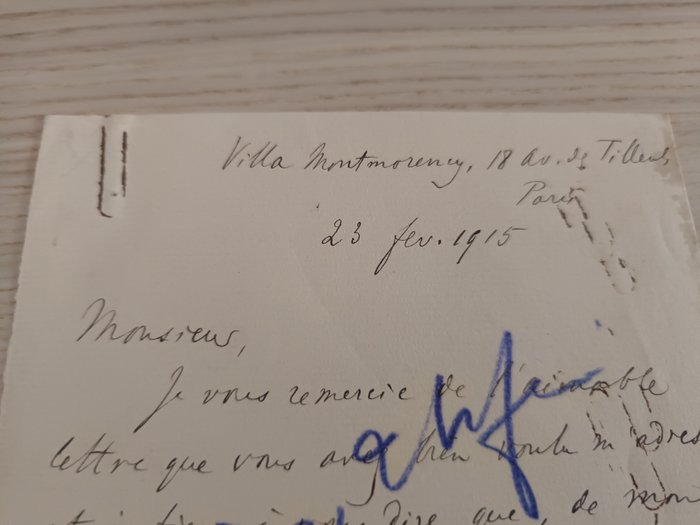 Villa Montmorency, 18 av. des Tilleuls,
Paris
23 fev. 1915
Monsieur,
Je vous remercie de l'aimable
lettre que vous avez bien voulu m'adres
dire que, de mon